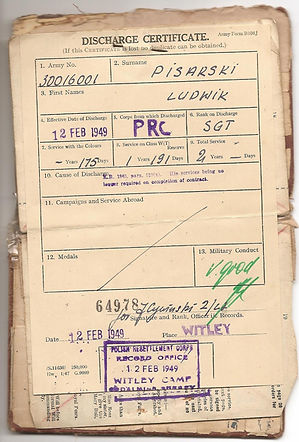 DISCHARGE CERTIFICATE.
Army Form B108J
(If this CERTIFICATE is lost no duplicate can be obtained.)
1. Army No.
2. Surname
30016001
PISARSKI
3. First Names
LUDWIK
4. Effective Date of Discharge
5. Corps from which Discharged
6. Rank on Discharge
12 FEB 1949
PRC
SGT
7. Service with the Colours
8. Service on Class W/T. Reserve
9. Total Service
– Years 175 Days
1 Years 191 Days
2 Years – Days
10. Cause of Discharge
His services being no
longer required on completion of contract.
11. Campaigns and Service Abroad
12. Medals
13. Military Conduct
V. good
64978
for
Signature and Rank, Officer i/c Records.
Date
12 FEB 1949
Place
WITLEY
POLISH RESETTLEMENT CORPS
RECORD OFFICE
12 FEB 1949
WITLEY CAMP
GODALMING, SURREY